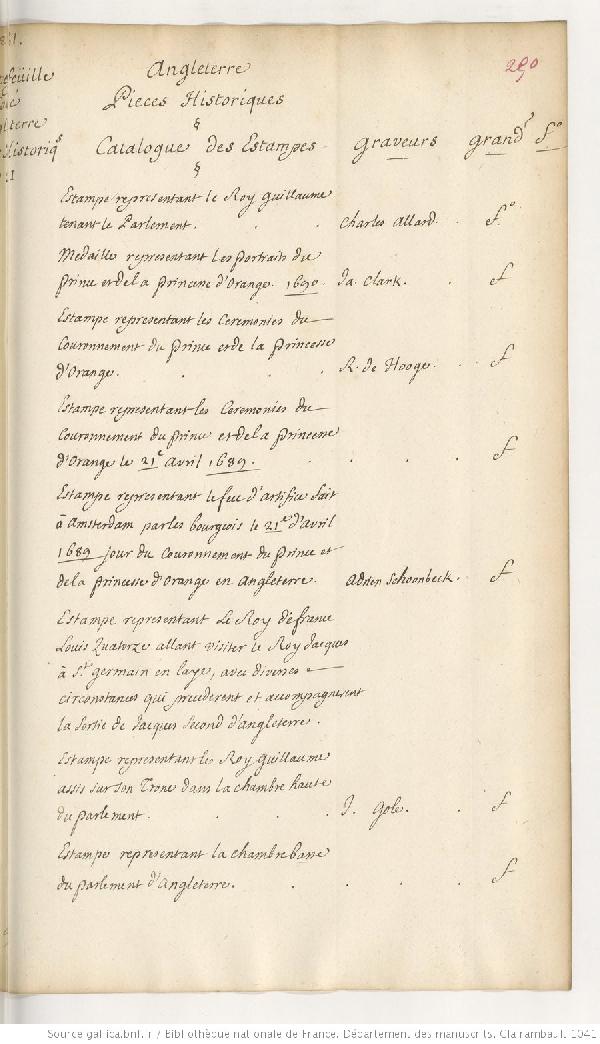 Angleterre
290
Pieces Historiques
§
Catalogue des Estampes graveurs grandr fo
§
Estampe representant le Roy guillaume
tenant le Parlement. Charles Allard. fo
Medaille representant les portraits du
prince et de la princesse d'Orange. 1690. Ja. Clark. f
Estampe representant les Ceremonies du
Couronnement du prince et de la princesse
d'Orange. R. de Hooge. f
Estampe representant les Ceremonies du
Couronnement du prince et de la princesse
d'Orange le 21e avril 1689. f
Estampe representant le feu d'artifice fait
à Amsterdam par les bourgeois le 21e d'avril
1689 jour du Couronnement du Prince et
de la princesse d'Orange en Angleterre. Adrien Schoonbeck. f
Estampe representant Le Roy de france
Louis Quatorze allant visiter le Roy Jacques
à St germain en laye, avec diverses
circonstances qui precederent et accompagnerent
la sortie de Jacques second d'angleterre.
Estampe representant le Roy guillaume
assis sur son Trone dans la chambre haute
du parlement. J. Gole. f
Estampe representant la chambre basse
du parlement d'Angleterre. f
Source gallica.bnf.fr / Bibliothèque nationale de France. Département des manuscrits. Clairambault 1041